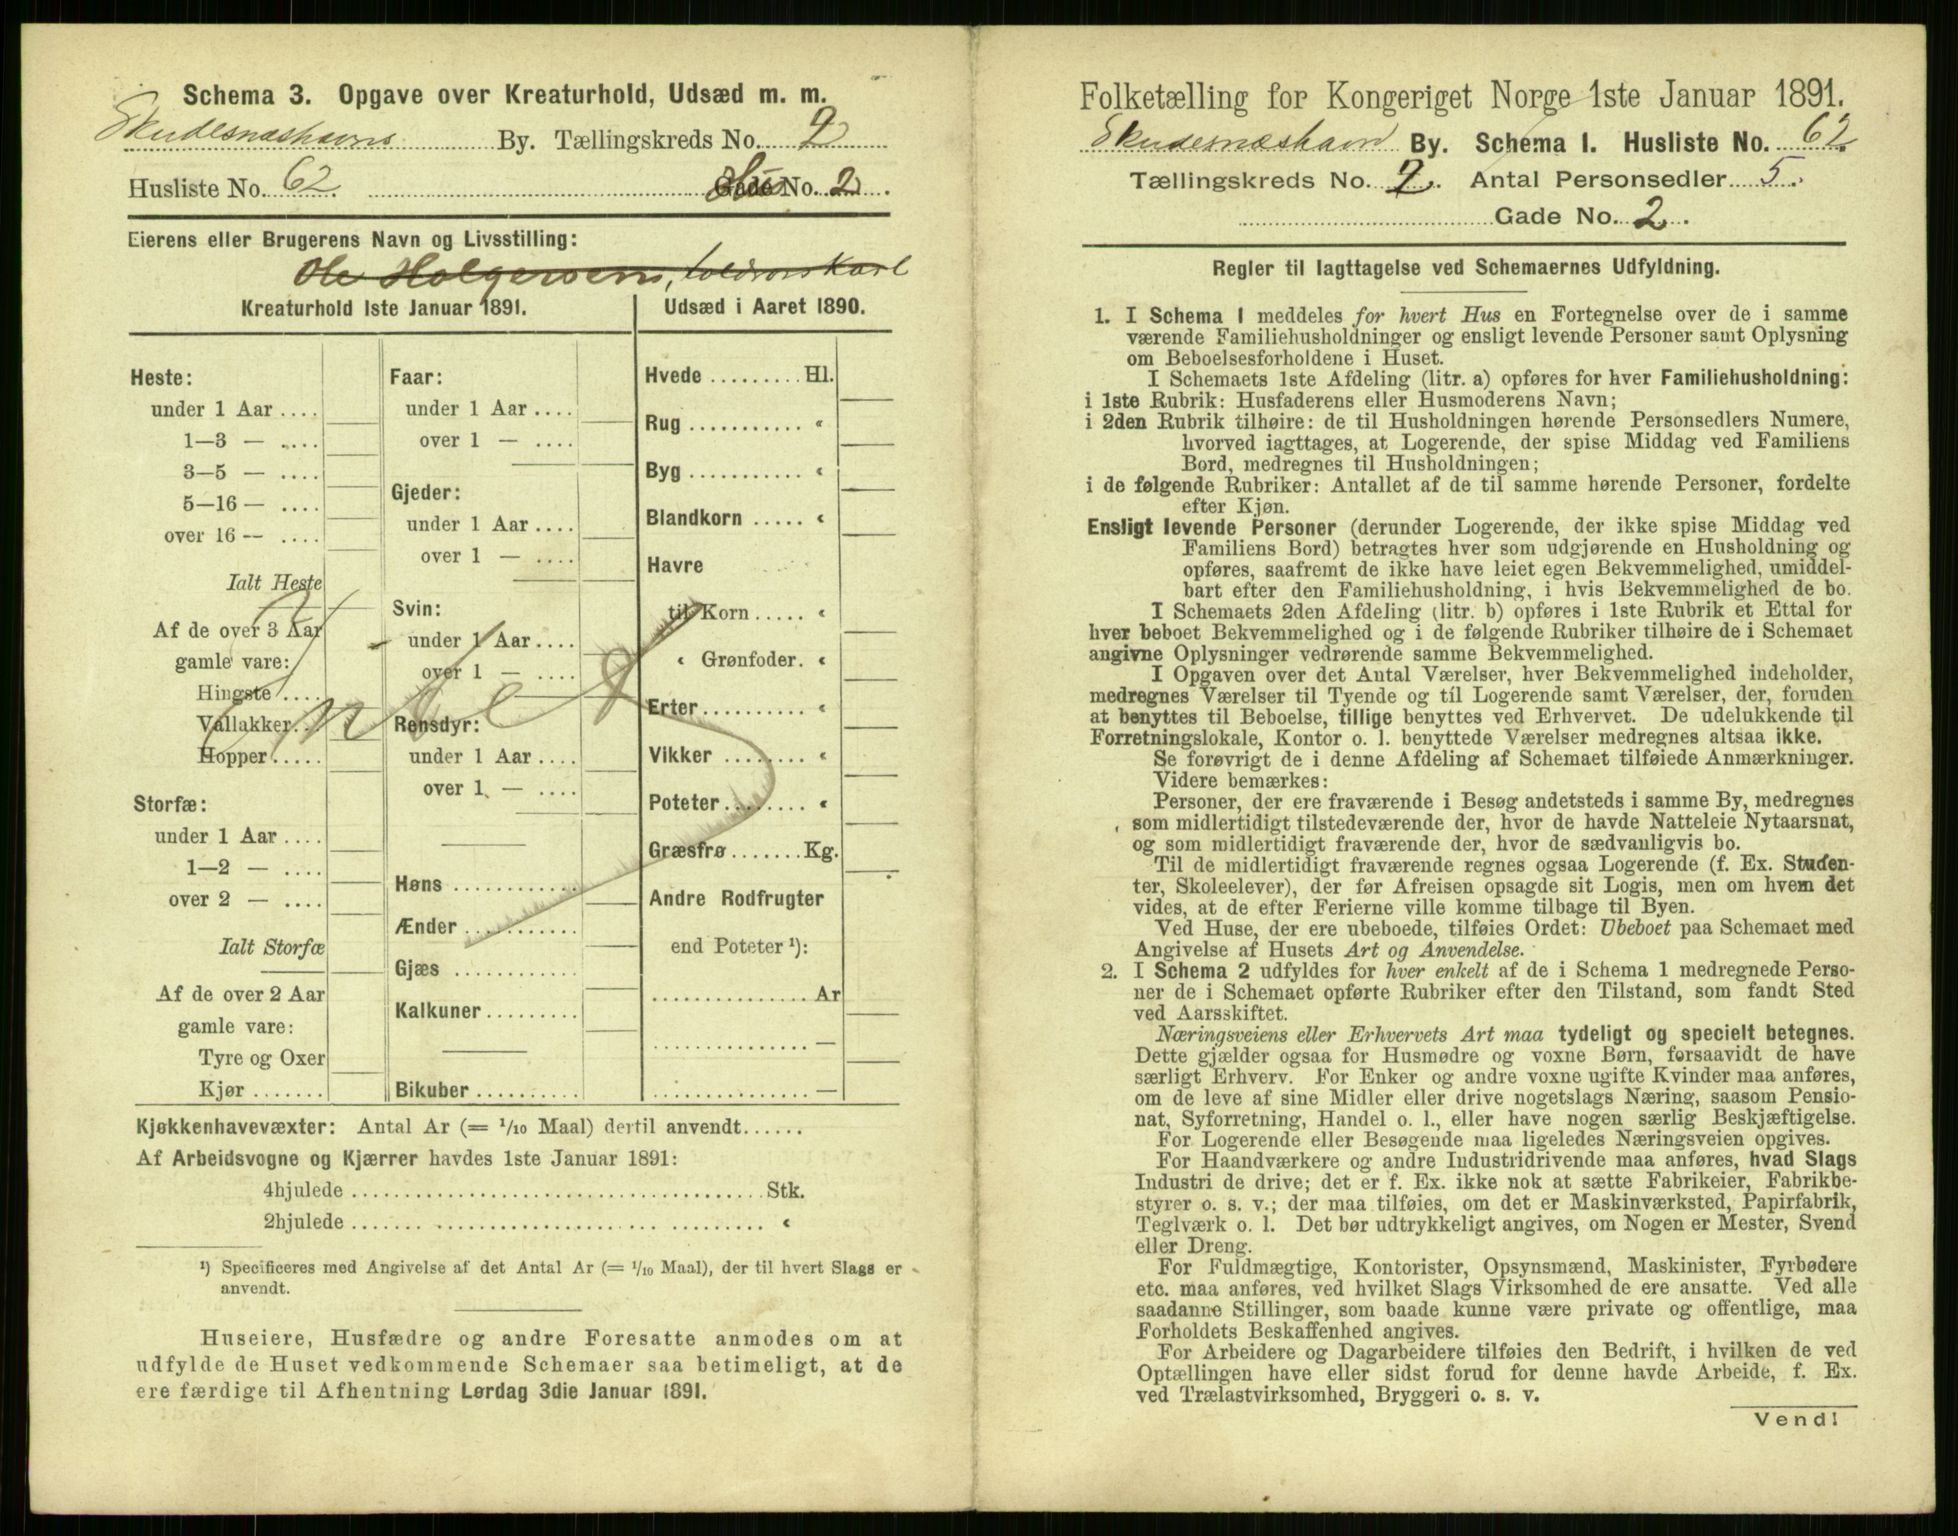 Schema 3. Opgave over Kreaturhold, Udsæd m. m.
Skudesnæshavns By. Tællingskreds No. 2
Husliste No. 62 Hus No. 2
Eierens eller Brugerens Navn og Livsstilling:
Ole Holgersen, toldroerskarl
Kreaturhold 1ste Januar 1891.
Heste:
under 1 Aar ....
1—3 — ....
3—5 — ....
5—16 — ....
over 16 — ....
Ialt Heste
Af de over 3 Aar
gamle vare:
Hingste ....
Vallakker....
Hopper.....
Storfæ:
under 1 Aar ....
1—2 — ....
over 2 — ....
Ialt Storfæ
Af de over 2 Aar
gamle vare:
Tyre og Oxer
Kjør .......
Faar:
under 1 Aar ....
over 1 — ....
Gjeder:
under 1 Aar ....
over 1 — ....
Svin:
under 1 Aar ....
over 1 — ....
Rensdyr:
under 1 Aar ....
over 1 — ....
Høns ............
Ænder ...........
Gjæs ............
Kalkuner.........
Bikuber ..........
Udsæd i Aaret 1890.
Hvede ......... Hl.
Rug ........... «
Byg ........... «
Blandkorn ..... «
Havre
til Korn ..... «
« Grønfoder. «
Erter.......... «
Vikker ........ «
Poteter........ «
Græsfrø....... Kg.
Andre Rodfrugter
end Poteter ¹):
............... Ar
............... —
............... —
Kjøkkenhavevæxter: Antal Ar (= 1/10 Maal) dertil anvendt......
Af Arbeidsvogne og Kjærrer havdes 1ste Januar 1891:
4hjulede ........................................ Stk.
2hjulede ........................................ «
¹) Specificeres med Angivelse af det Antal Ar (= 1/10 Maal), der til hvert Slags er
anvendt.
Huseiere, Husfædre og andre Foresatte anmodes om at
udfylde de Huset vedkommende Schemaer saa betimeligt, at de
ere færdige til Afhentning Lørdag 3die Januar 1891.
Folketælling for Kongeriget Norge 1ste Januar 1891.
Skudesnæshavn By. Schema 1. Husliste No. 62
Tællingskreds No. 2. Antal Personsedler 5.
Gade No. 2.
Regler til Iagttagelse ved Schemaernes Udfyldning.
1. I Schema 1 meddeles for hvert Hus en Fortegnelse over de i samme
værende Familiehusholdninger og ensligt levende Personer samt Oplysning
om Beboelsesforholdene i Huset.
I Schemaets 1ste Afdeling (litr. a) opføres for hver Familiehusholdning:
i 1ste Rubrik: Husfaderens eller Husmoderens Navn;
i 2den Rubrik tilhøire: de til Husholdningen hørende Personsedlers Numere,
hvorved iagttages, at Logerende, der spise Middag ved Familiens
Bord, medregnes til Husholdningen;
i de følgende Rubriker: Antallet af de til samme hørende Personer, fordelte
efter Kjøn.
Ensligt levende Personer (derunder Logerende, der ikke spise Middag ved
Familiens Bord) betragtes hver som udgjørende en Husholdning og
opføres, saafremt de ikke have leiet egen Bekvemmelighed, umiddel-
bart efter den Familiehusholdning, i hvis Bekvemmelighed de bo.
I Schemaets 2den Afdeling (litr. b) opføres i 1ste Rubrik et Ettal for
hver beboet Bekvemmelighed og i de følgende Rubriker tilhøire de i Schemaet
angivne Oplysninger vedrørende samme Bekvemmelighed.
I Opgaven over det Antal Værelser, hver Bekvemmelighed indeholder,
medregnes Værelser til Tyende og til Logerende samt Værelser, der, foruden
at benyttes til Beboelse, tillige benyttes ved Erhvervet. De udelukkende til
Forretningslokale, Kontor o. l. benyttede Værelser medregnes altsaa ikke.
Se forøvrigt de i denne Afdeling af Schemaet tilføiede Anmærkninger.
Videre bemærkes:
Personer, der ere fraværende i Besøg andetsteds i samme By, medregnes
som midlertidigt tilstedeværende der, hvor de havde Natteleie Nytaarsnat,
og som midlertidigt fraværende der, hvor de sædvanligvis bo.
Til de midlertidigt fraværende regnes ogsaa Logerende (f. Ex. Studen-
ter, Skoleelever), der før Afreisen opsagde sit Logis, men om hvem det
vides, at de efter Ferierne ville komme tilbage til Byen.
Ved Huse, der ere ubeboede, tilføies Ordet: Ubeboet paa Schemaet med
Angivelse af Husets Art og Anvendelse.
2. I Schema 2 udfyldes for hver enkelt af de i Schema 1 medregnede Perso-
ner de i Schemaet opførte Rubriker efter den Tilstand, som fandt Sted
ved Aarsskiftet.
Næringsveiens eller Erhvervets Art maa tydeligt og specielt betegnes.
Dette gjælder ogsaa for Husmødre og voxne Børn, forsaavidt de have
særligt Erhverv. For Enker og andre voxne ugifte Kvinder maa anføres,
om de leve af sine Midler eller drive nogetslags Næring, saasom Pensio-
nat, Syforretning, Handel o. l., eller have nogen særlig Beskjæftigelse.
For Logerende eller Besøgende maa ligeledes Næringsveien opgives.
For Haandværkere og andre Industridrivende maa anføres, hvad Slags
Industri de drive; det er f. Ex. ikke nok at sætte Fabrikeier, Fabrikbe-
styrer o. s. v.; der maa tilføies, om det er Maskinværksted, Papirfabrik,
Teglværk o. l. Det bør udtrykkeligt angives, om Nogen er Mester, Svend
eller Dreng.
For Fuldmægtige, Kontorister, Opsynsmænd, Maskinister, Fyrbødere
etc. maa anføres, ved hvilket Slags Virksomhed de ere ansatte. Ved alle
saadanne Stillinger, som baade kunne være private og offentlige, maa
Forholdets Beskaffenhed angives.
For Arbeidere og Dagarbeidere tilføies den Bedrift, i hvilken de ved
Optællingen have eller sidst forud for denne havde Arbeide, f. Ex.
ved Trælastvirksomhed, Bryggeri o. s. v.
Vend!